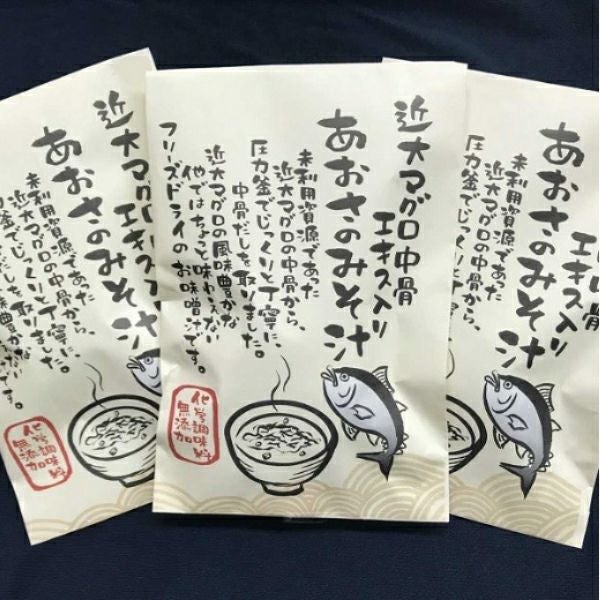 近大マグロ中骨
エキス入り
あおさのみそ汁
未利用資源であった
近大マグロの中骨から、
圧力釜でじっくりと丁寧に、
中骨だしを取りました。
近大マグロの風味豊かな
他ではちょっと味わえない
フリーズドライのお味噌汁です。
化学調味料
無添加
近大マグロ
エキス入
あおさのみそ
未利用資源であった
近大マグロの中骨から、
力釜でじっくりと丁寧に、
だしを取りました
風味豊かな
化学調味料
無添加
口中骨
エキス入り
あおさのみそ汁
未利用資源であった
近大マグロの中骨から、
圧力釜でじっくりと丁寧に、